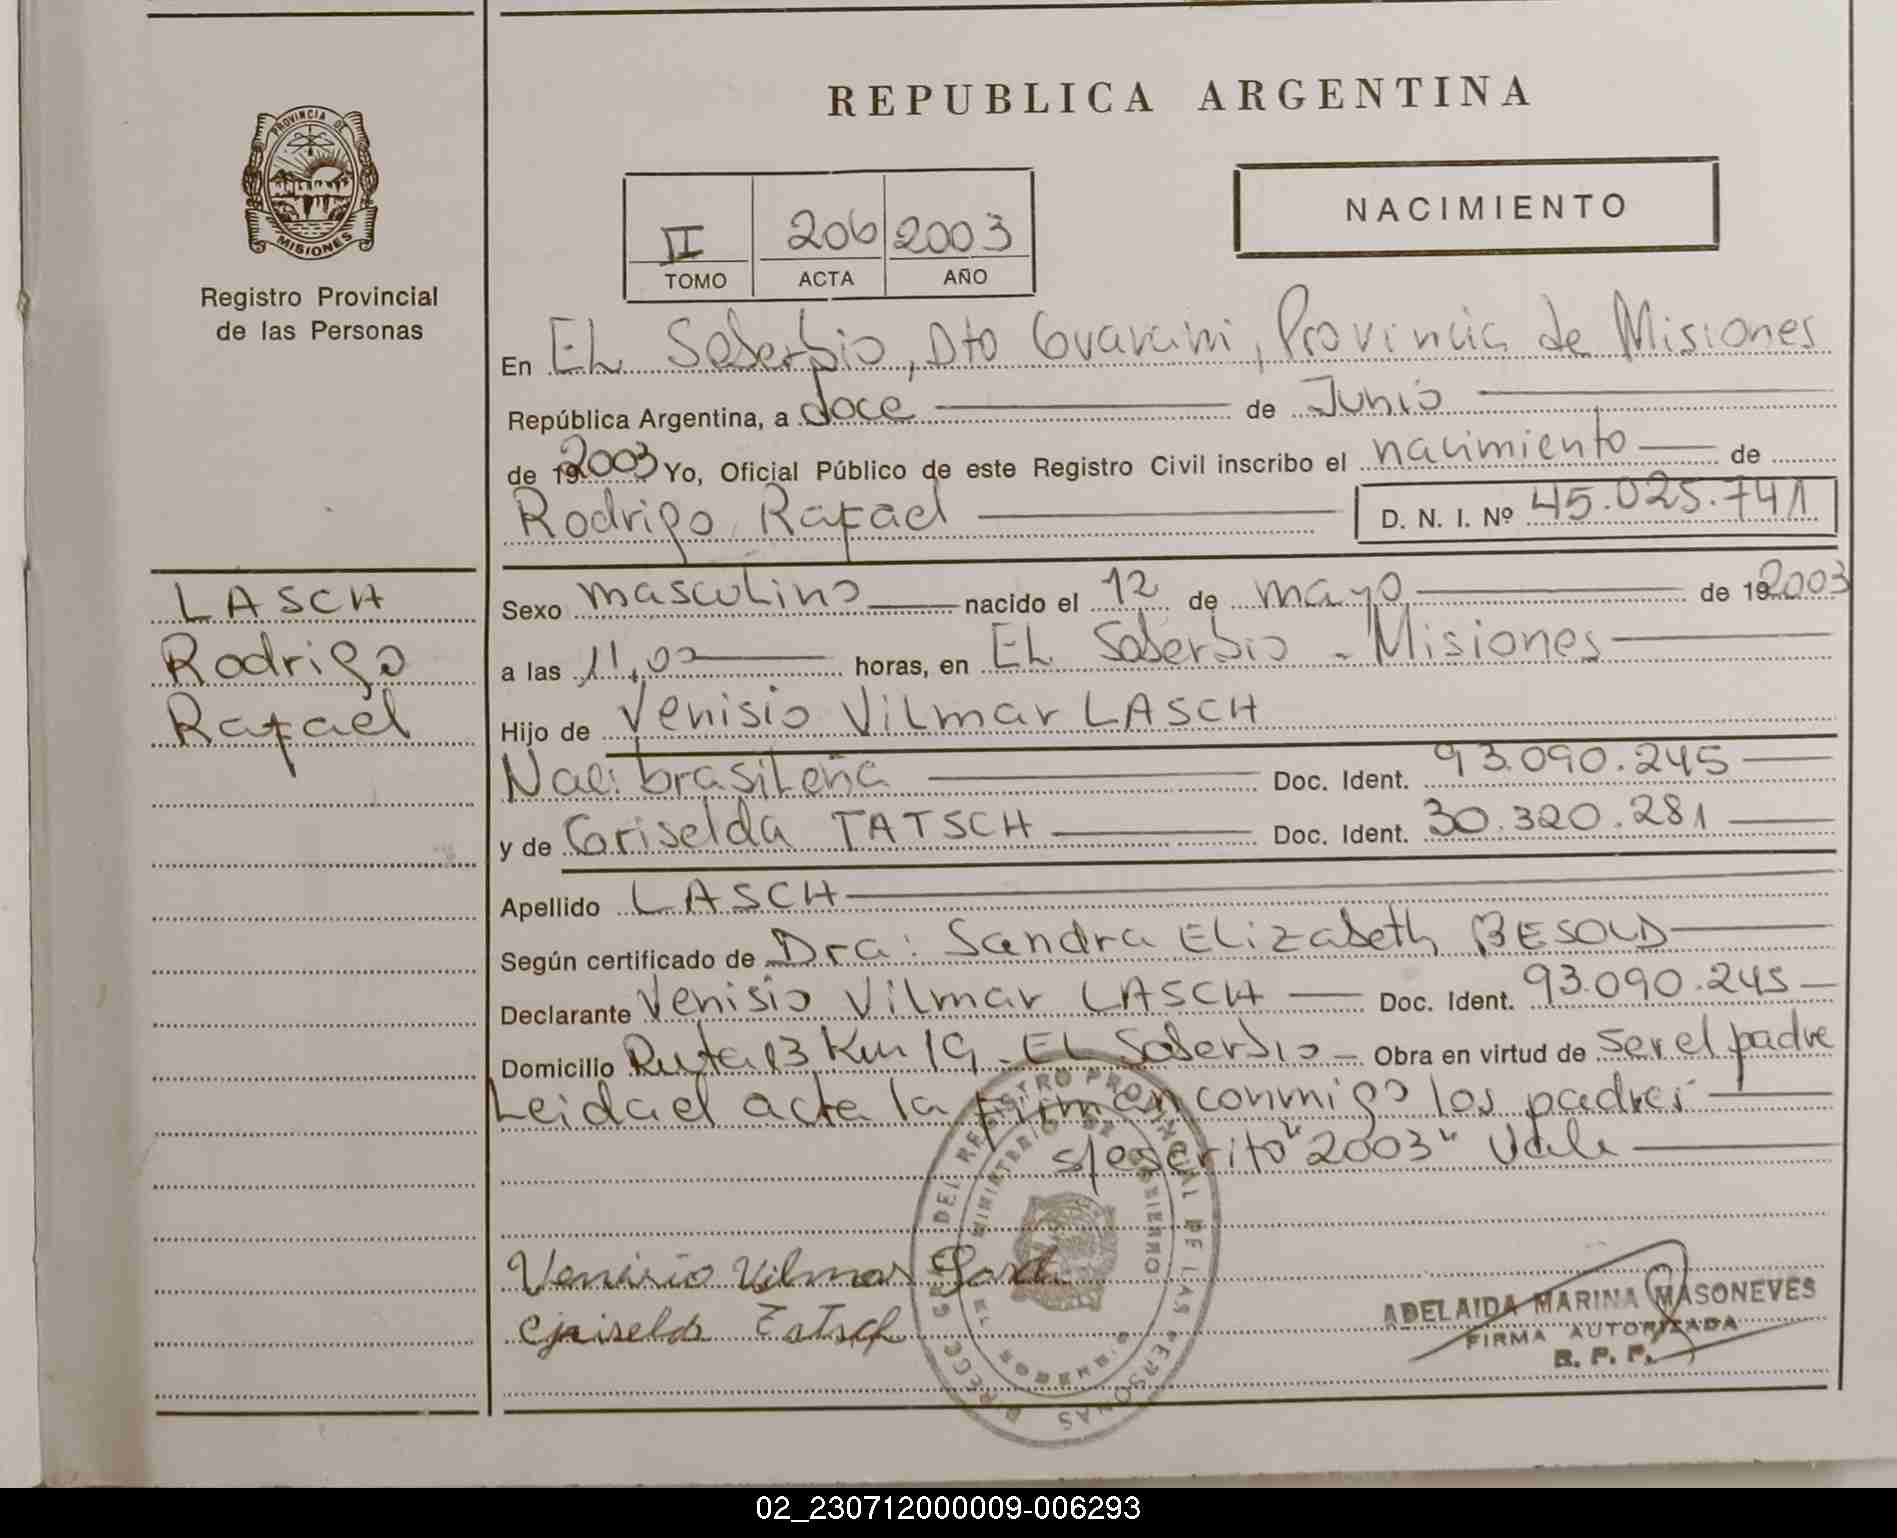 REPUBLICA ARGENTINA
PROVINCIA DE
MISIONES
Registro Provincial
de las Personas
II 206 2003
TOMO ACTA AÑO
NACIMIENTO
En EL Soberbio, Dto Guarani, Provincia de Misiones
República Argentina, a doce de Junio
de 192003 Yo, Oficial Público de este Registro Civil inscribo el nacimiento de
Rodrigo Rafael D. N. I. Nº 45.025.741
LASCH
Rodrigo
Rafael
Sexo masculino nacido el 12 de mayo de 192003
a las 11,00 horas, en EL Soberbio - Misiones
Hijo de Venisio Vilmar LASCH
Nac: brasileña Doc. Ident. 93.090.245
y de Griselda TATSCH Doc. Ident. 30.320.281
Apellido LASCH
Según certificado de Dra: Sandra Elizabeth BESOLD
Declarante Venisio Vilmar LASCH Doc. Ident. 93.090.245
Domicilio Ruta 13 Km 19 - EL Soberbio - Obra en virtud de ser el padre
Leida el acta la firman conmigo los padres
s/escrito "2003" Vale
Venisio Vilmar Lasch
Griselda Tatsch
DEL REGISTRO PROVINCIAL DE LAS PERSONAS
MINISTERIO DE GOBIERNO
ADELAIDA MARINA MASONEVES
FIRMA AUTORIZADA
R. P. P.
02_230712000009-006293